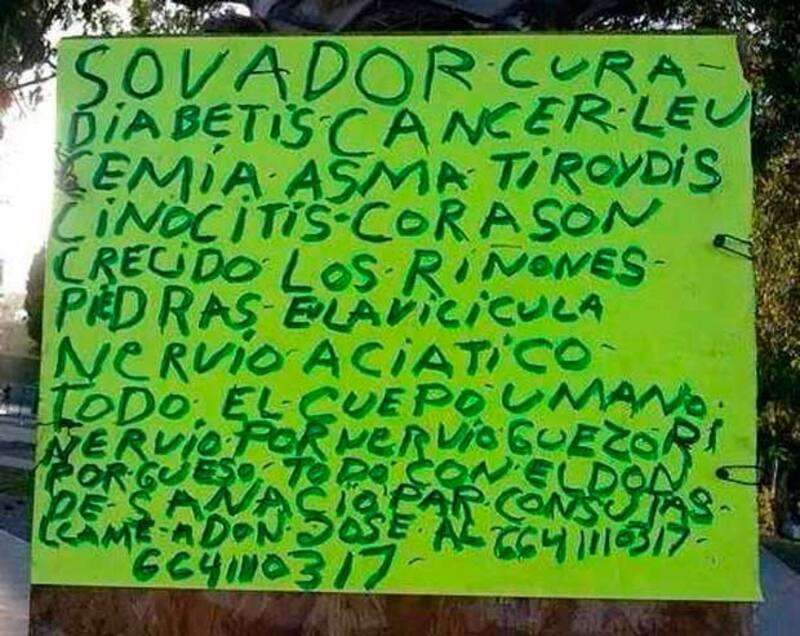 SOVADOR-CURA-
DIABETIS-CANCER-LEU
CEMIA-ASMA-TIROYDIS
CINOCITIS-CORASON
CRECIDO-LOS-RIÑONES-
PIEDRAS-ENLAVICICULA
NERVIO-ACIATICO-
TODO-EL-CUEPO-UMANO-
NERVIO-PORNERVIO
PORGUESO-TODO-CON-ELDON
DE-SANACIO-PAR-CONSUTAS-
LLAME-ADON JOSE-AL-6641110317-
6641110317-